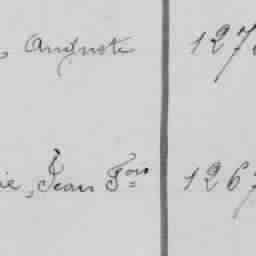 Auguste 127
ie, Jean Fois 126